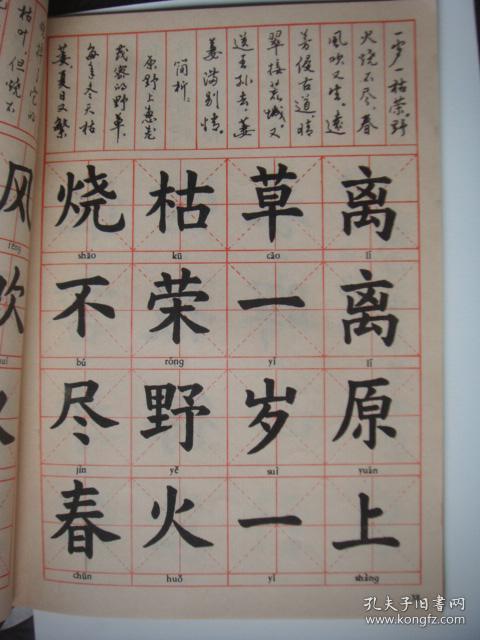 一岁一枯荣。野
火烧不尽,春
风吹又生。远
芳侵古道,晴
翠接荒城。又
送王孙去,萋
萋满别情。
简析:
原野上葱茏
茂密的野草,
每年冬天枯
萎,夏日又繁
离离原上
lí lí yuán shàng
草一岁一
cǎo yí suì yì
枯荣野火
kū róng yě huǒ
烧不尽春
shāo bú jìn chūn
掉了它的
枯叶,但烧不
风吹
fēng
孔夫子旧书网
kongfz.com